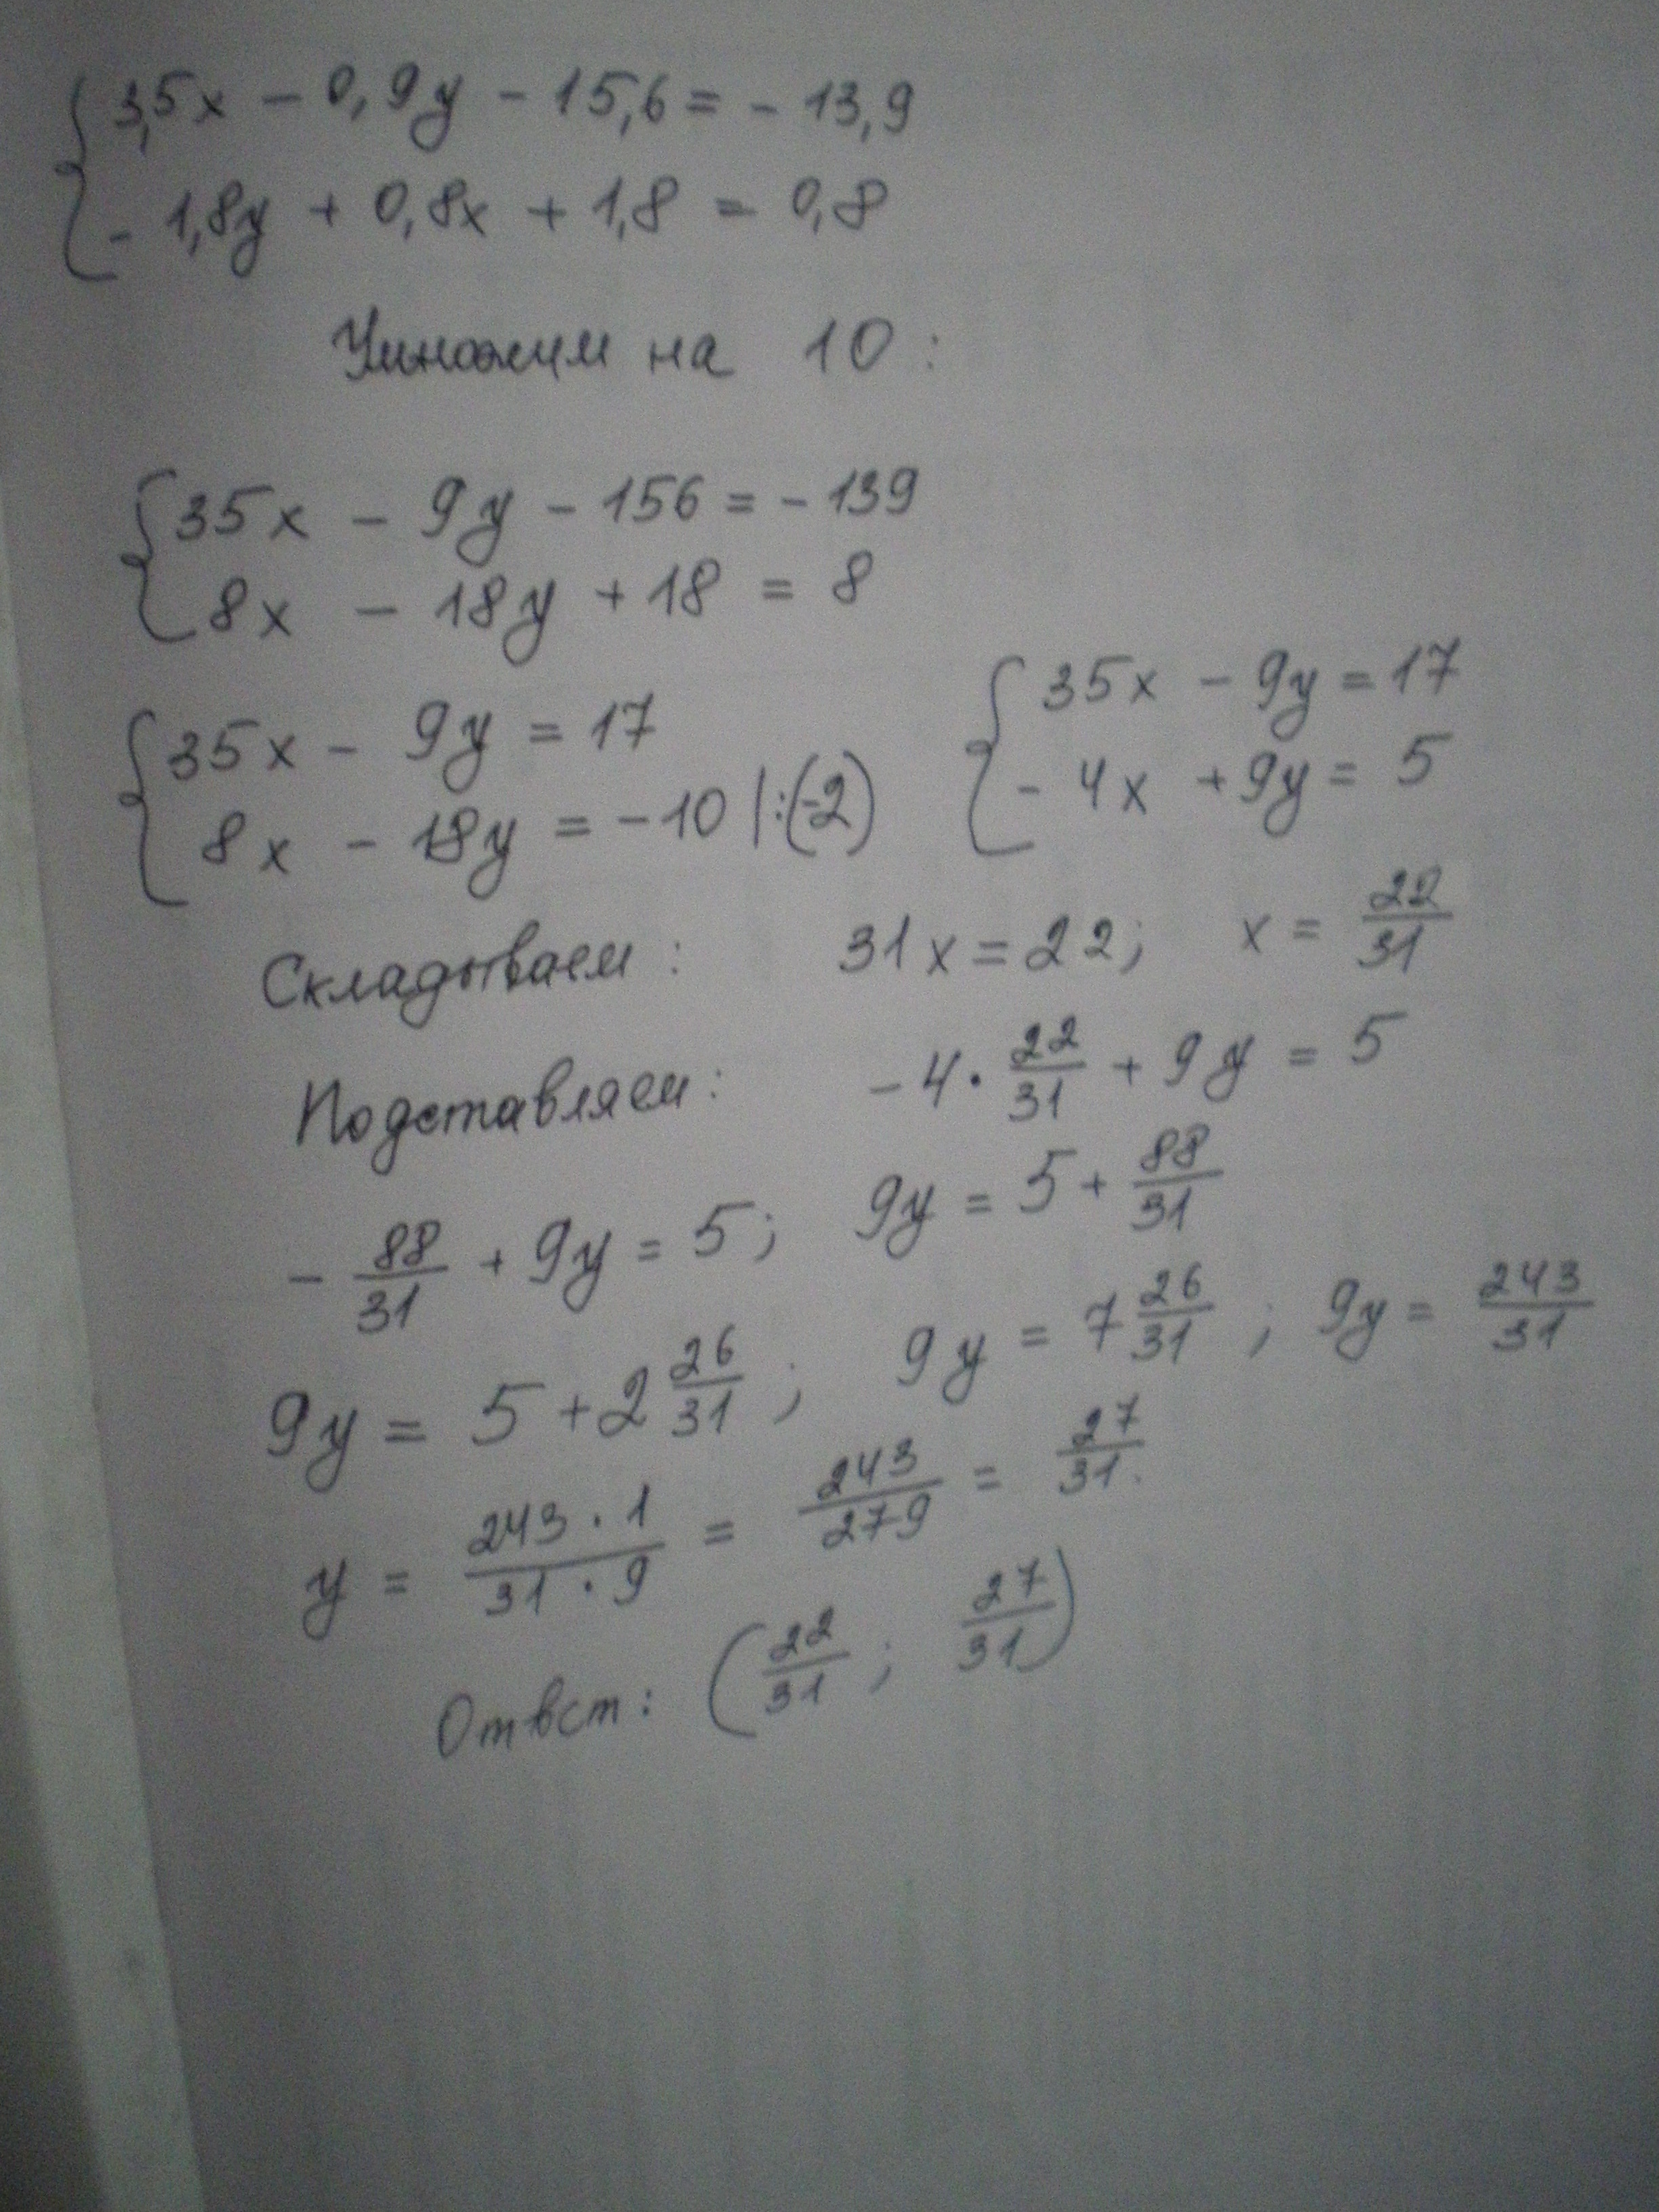 { 3,5x - 0,9y - 15,6 = - 13,9
- 1,8y + 0,8x + 1,8 = 0,8
Умножим на 10:
{ 35x - 9y - 156 = - 139
8x - 18y + 18 = 8
{ 35x - 9y = 17
8x - 18y = -10 |:(-2)
{ 35x - 9y = 17
- 4x + 9y = 5
Складываем: 31x = 22; x = 22/31
Подставляем: - 4 · 22/31 + 9y = 5
- 88/31 + 9y = 5; 9y = 5 + 88/31
9y = 5 + 2 26/31; 9y = 7 26/31; 9y = 243/31
y = 243 · 1 / 31 · 9 = 243/279 = 27/31.
Ответ: (22/31; 27/31)